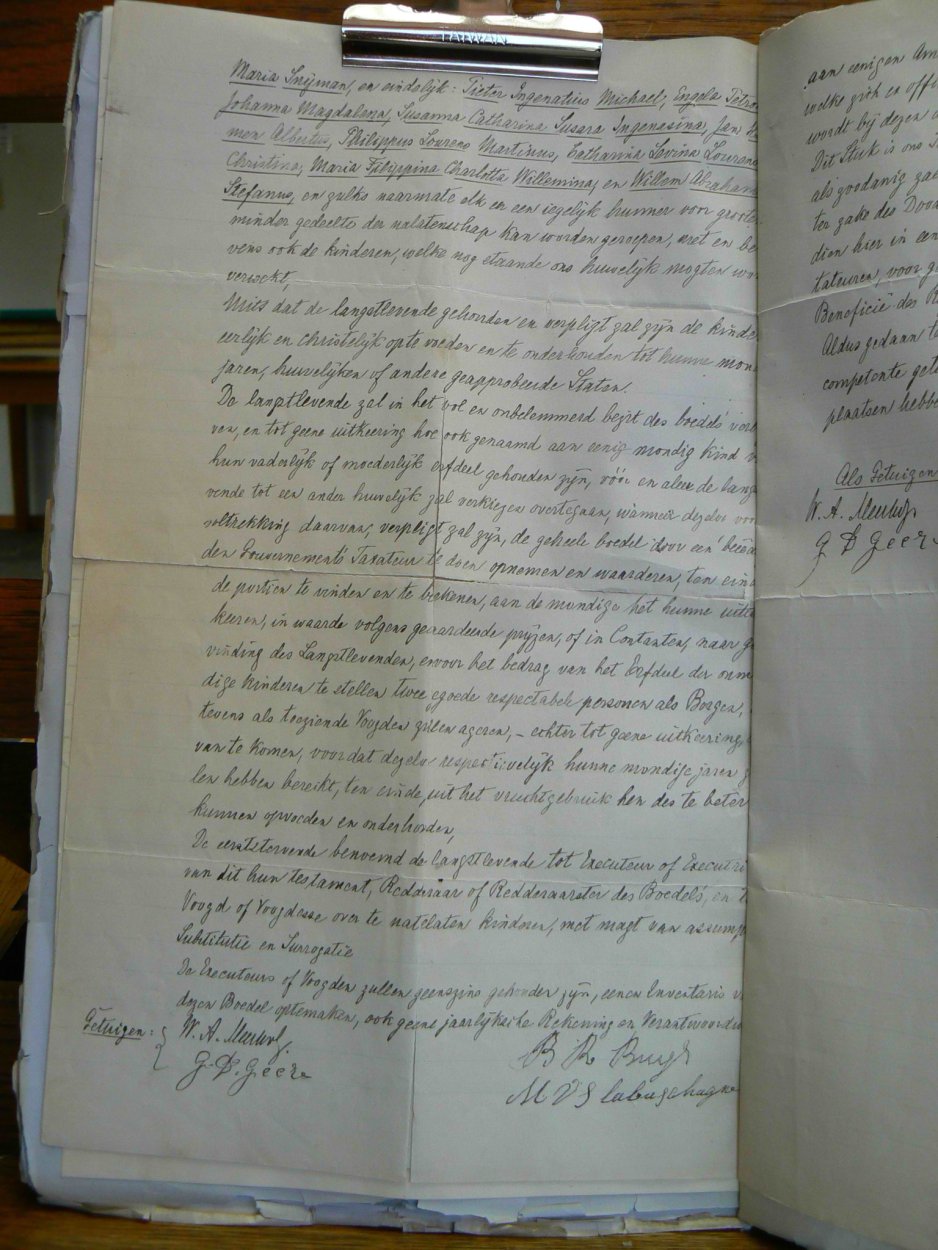 TAIWAN
Maria Snijman, en eindelijk: Pieter Ingenatius Michael, Engela Petro
Johanna Magdalena, Susanna Catharina Susara Ingenasina, Jan
men Albertus, Philippus Lourens Martinus, Catharina Levina Lourens
Christina, Maria Filippina Charlotta Willemina, en Willem Abraham
Stefanus, en zulks naarmate elk en een iegelijk hunner voor groote
minder gedeelte der nalatenschap kan worden geroepen, met en be
vens ook de kinderen, welke nog staande ons huwelijk mogten wor
verwekt,
Mits dat de langstlevende gehouden en verpligt zal zijn de kinde
eerlijk en christelijk opte voeden en te onderhouden tot hunne mon
jaren, huwelijken of andere geapprobeerde Staten.
De langstlevende zal in het vol en onbelemmerd bezit des boedels verb
ven, en tot geene uitkeering hoe ook genaamd aan eenig mondig kind v
hun vaderlijk of moederlijk erfdeel gehouden zijn, vóór en aleer de lang
vende tot een ander huwelijk zal verkiezen overtegaan, wanneer dezelve voor
voltrekking daarvan, verpligt zal zijn, de geheele boedel door een beëed
den Gouvernements Taxateur te doen opnemen en waarderen, ten eind
de portien te vinden en te berekenen, aan de mondige het hunne uitte
keeren, in waarde volgens gewaardeerde prijzen, of in Contanten, naar g
vinding des Langstlevenden, en voor het bedrag van het Erfdeel der onm
dige kinderen te stellen twee goede respectabele personen als Borgen,
tevens als toeziende Voogden zullen ageren, – echter tot geene uitkeering
van te komen, voordat dezelve respectivelijk hunne mondige jaren z
len hebben bereikt, ten einde, uit het vruchtgebruik hen des te beter
kunnen opvoeden en onderhouden,
De eerststervende benoemd de langstlevende tot Executeur of Executri
van dit hun testament, Redderaar of Redderaarster des Boedels, en t
Voogd of Voogdesse over te natelaten kinderen, met magt van assump
Substitutie en Surrogatie
De Executeurs of Voogden zullen geenszins gehouden zijn, eenen Inventaris v
dezen Boedel optemaken, ook geene jaarlijksche Rekening en Verantwoordin
Getuigen:
W. A.
G. D. Geere
B R Buys
M D S labuschagne
aan eenigen Am
welke zich en offi
wordt bij dezen
Dit Stuk is ons
als goodanig zal
ter zake des Door
dien hier in een
tateuren, voor g
Beneficie des R
Aldus gedaan te
competente getu
plaatsen hebbe
Als Getuigen
W. A.
G D Geere